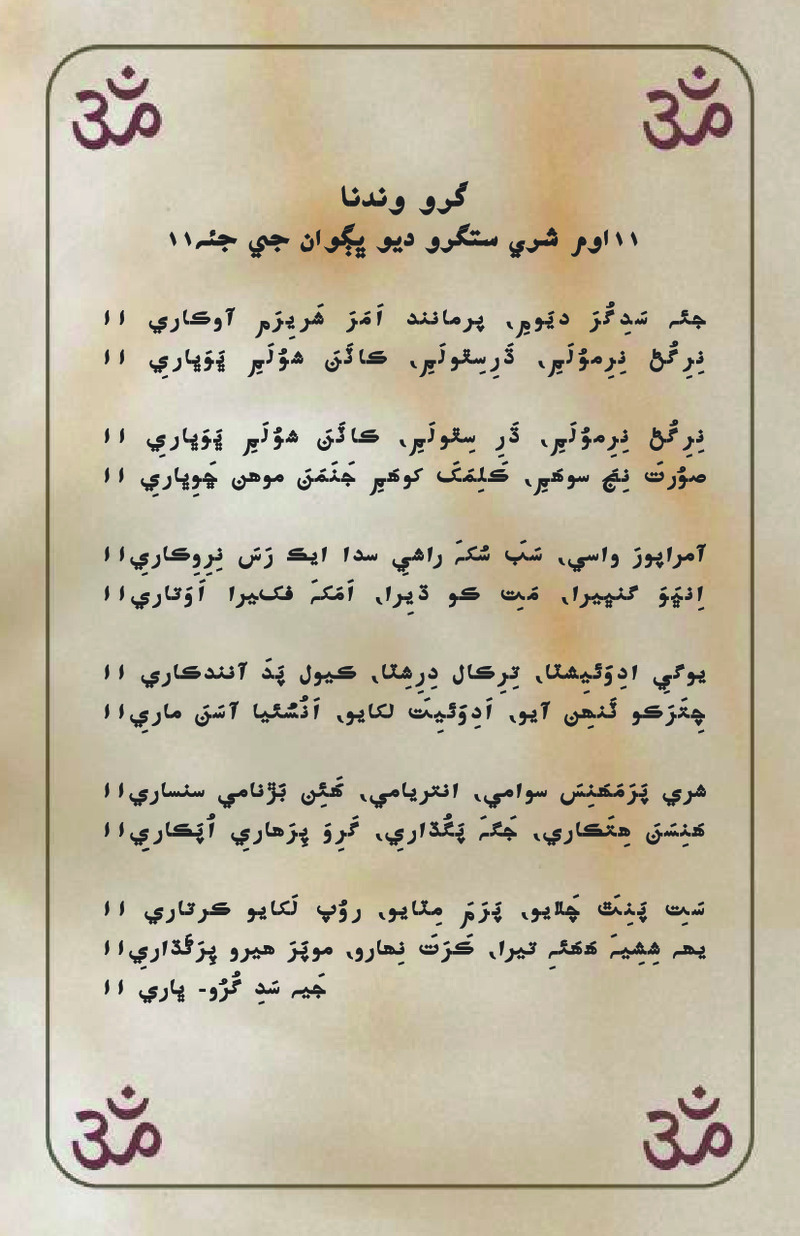 گرو وندنا
۱۱اوم شري ستگرو ديو ڀڳوان جي جئہ۱۱
جئہ سَدِگُرَ ديَومِ، پرمانند اَمَرَ شَرِيرَم آوڪاري ۱۱
نِرِگُڻ نِرِموُلَمِ، ڌَرِسِٿولَمِ، ڪاٽَنَ شوُلَمِ ڀَوَڀاري ۱۱
نِرِگُڻ نِرِموُلَمِ، ڌَرِ سِٿولَمِ، ڪاٽَنَ شوُلَمِ ڀَوَڀاري ۱۱
صوُرتَ نِڄَ سوهَمِ، ڪَلِمَکَ کوهَمِ جَنَمَنَ موهن ڇَوِڀاري ۱۱
آمراپورَ واسي، سَڀَ سُکہَ راشي سدا ايڪ رَسَ نِروِڪاري۱۱
اِنڀَوَ گنڀيرا، مَتِ ڪو ڌيرا، اَمَکہَ فڪيرا اَوَتاري۱۱
يوگي ادِوَئيشٽا، تِرِڪال دِرِشٽا، ڪيول پَدَ آنندڪاري ۱۱
چِتَرَڪو ٺَنهِن آيو، اَدِوَئيتَ لکايو، اَنُسُئيا آسَنَ ماري۱۱
شري پَرَمَهَنِسَ سوامي، انتريامي، هَئِن بَڙنامي سنساري۱۱
هَنِسَنَ هِتَڪاري، جَگہَ پَڳُڌاري، گَرِوَ پِرَهاري اُپَڪاري۱۱
سَتِ پَنِٿَ چَلايو، ڀَرَمَ مِٽايو، روُپ لَکايو ڪرتاري ۱۱
يھہ شِشِيہَ هَهَئہِ تيرا، ڪَرَتَ نِهارو، موپَرَ هيرو پِرَڻَڌاري۱۱
جَيہ سَدِ گُرُو- ڀاري ۱۱